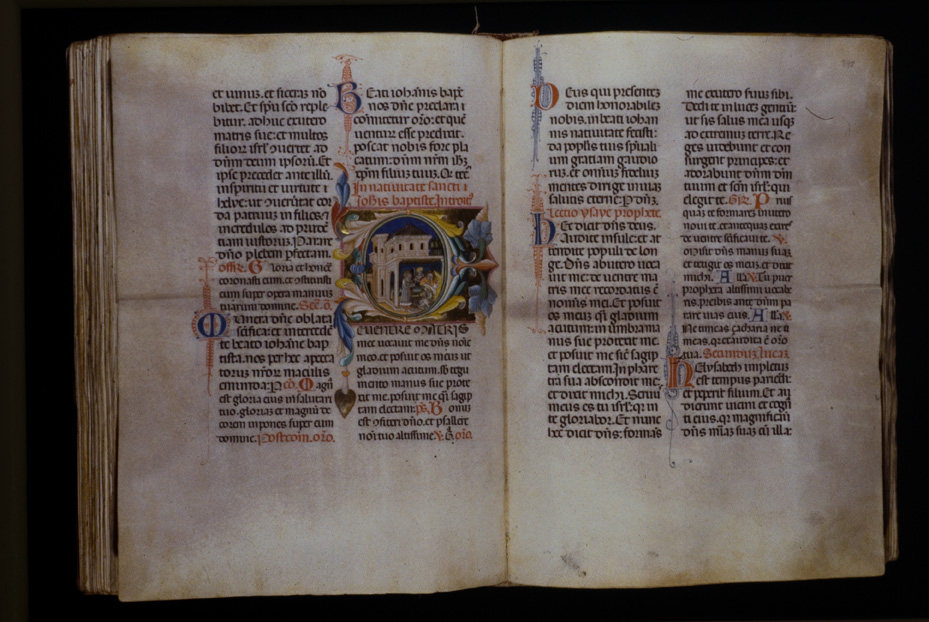 et uinuz. et siceraz nō
bibet. Et spū scō reple
bitur. adhuc ex utero
matris sue: et multos
filioꝝ isrl ꝯuertet ad
dn̄m deum ipsoꝝ. Et
ipse precedet ante illū.
in spiritu et uirtute
helye: ut ꝯuertat cor
da patrum in filios: et
incredulos ad prudē
tiam iustoꝝ. Parare
dn̄o plebem perfectam.
offer. Gloria et honore
coronasti eum. et ꝯstituisti
eum super opera manuum
tuarum domine. Sec. o.
Munera dn̄e oblata
scifica: et intercedē
te beato iohāne bap
tista. nos per hec a pecca
torum nr̄oꝝ maculis
emunda. p. Co. Magna
est gloria eius in salutari
tuo. gloriaz et magnū de
corem impones super eum
domine. Postcom. oro.
Beati iohānis bapt̄
nos dn̄e preclara
comitetur oro: et quē
uenturum esse predixit.
poscat nobis fore pla
catum. dn̄m nr̄m ihz
xp̄m filium tuuz. Qui tec̄
In natiuitate sancti i
ohis baptiste. Introit
DE VENTRE MATRIS
mee uocauit me dn̄s noīe
meo. et posuit os meuz ut
gladium acutum. sb tegu
mento manus sue prote
xit me. posuit me q̄si sagit
tam electam. ps. Bonum
est ꝯfiteri dn̄o. et psallere
noī tuo altissime. V. G. oro.
Deus qui presentez
diem honorabilez
nobis. in beati iohan
nis natiuitate fecisti:
da populis tuis spūali
um gratiam gaudio
rum. et omnium fidelium
mentes dirige in uiaz
salutis eterne. P. dn̄z.
Lectio ysaye prophete.
Hec dicit dn̄s deus.
Audite insule: et at
tendite populi de lon
ge. Dn̄s ab utero uoca
uit me: de uentre ma
tris mee recordatus ē
nominis mei. Et posuit
os meuz q̄si gladium
acutum: in umbra ma
nus sue protexit me.
et posuit me sic̄ sagit
tam electam. In phare
tra sua abscondit me.
et dixit michi. Seruus
meus es tu isrl: qr̄ in
te gloriabor. Et nunc
hec dicit dn̄s: formans
me ex utero seruū sibi.
Dedi te in lucez gentiū:
ut sis salus mea usqz
ad extremuz terre. Re
ges uidebunt et con
surgent principes: et
adorabunt dn̄m deu
tuum et scm̄ isrl: qui
elegit te. Gr. Prius
quaz te formarez in utero
noui te. et anteq̄z exires
de uentre scificaui te. V.
Misit dn̄s manuz suaz
et tetigit os meuz. et dixit
michi. Alla. V. Tu puer
propheta altissimi uocabe
ris. preibis ante dn̄m pa
rare uias eius. Alla. V.
Ne timeas çacharia ne ti
meas. qr̄ exaudita ē oro
tua. Secundum lucaz.
Helysabeth impletuz
est tempus pariēdi:
et peperit filium. Et au
dierunt uicini et cogn̄
ti eius. qr̄ magnificau
dn̄s mīaz suaz cū illa: